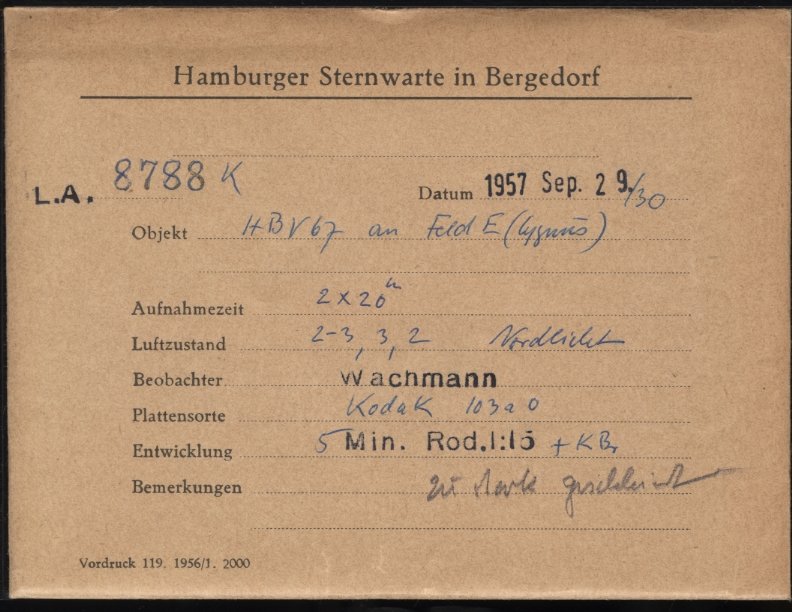 Hamburger Sternwarte in Bergedorf
L.A. 8788 K
Datum 1957 Sep. 29./30
Objekt HBV 67 an Feld E (Cygnus)
Aufnahmezeit 2 x 20 m
Luftzustand 2-3, 3, 2 Nordlicht
Beobachter Wachmann
Plattensorte Kodak 103a0
Entwicklung 5 Min. Rod. 1:15 + KBr
Bemerkungen zu stark
Vordruck 119. 1956/1. 2000